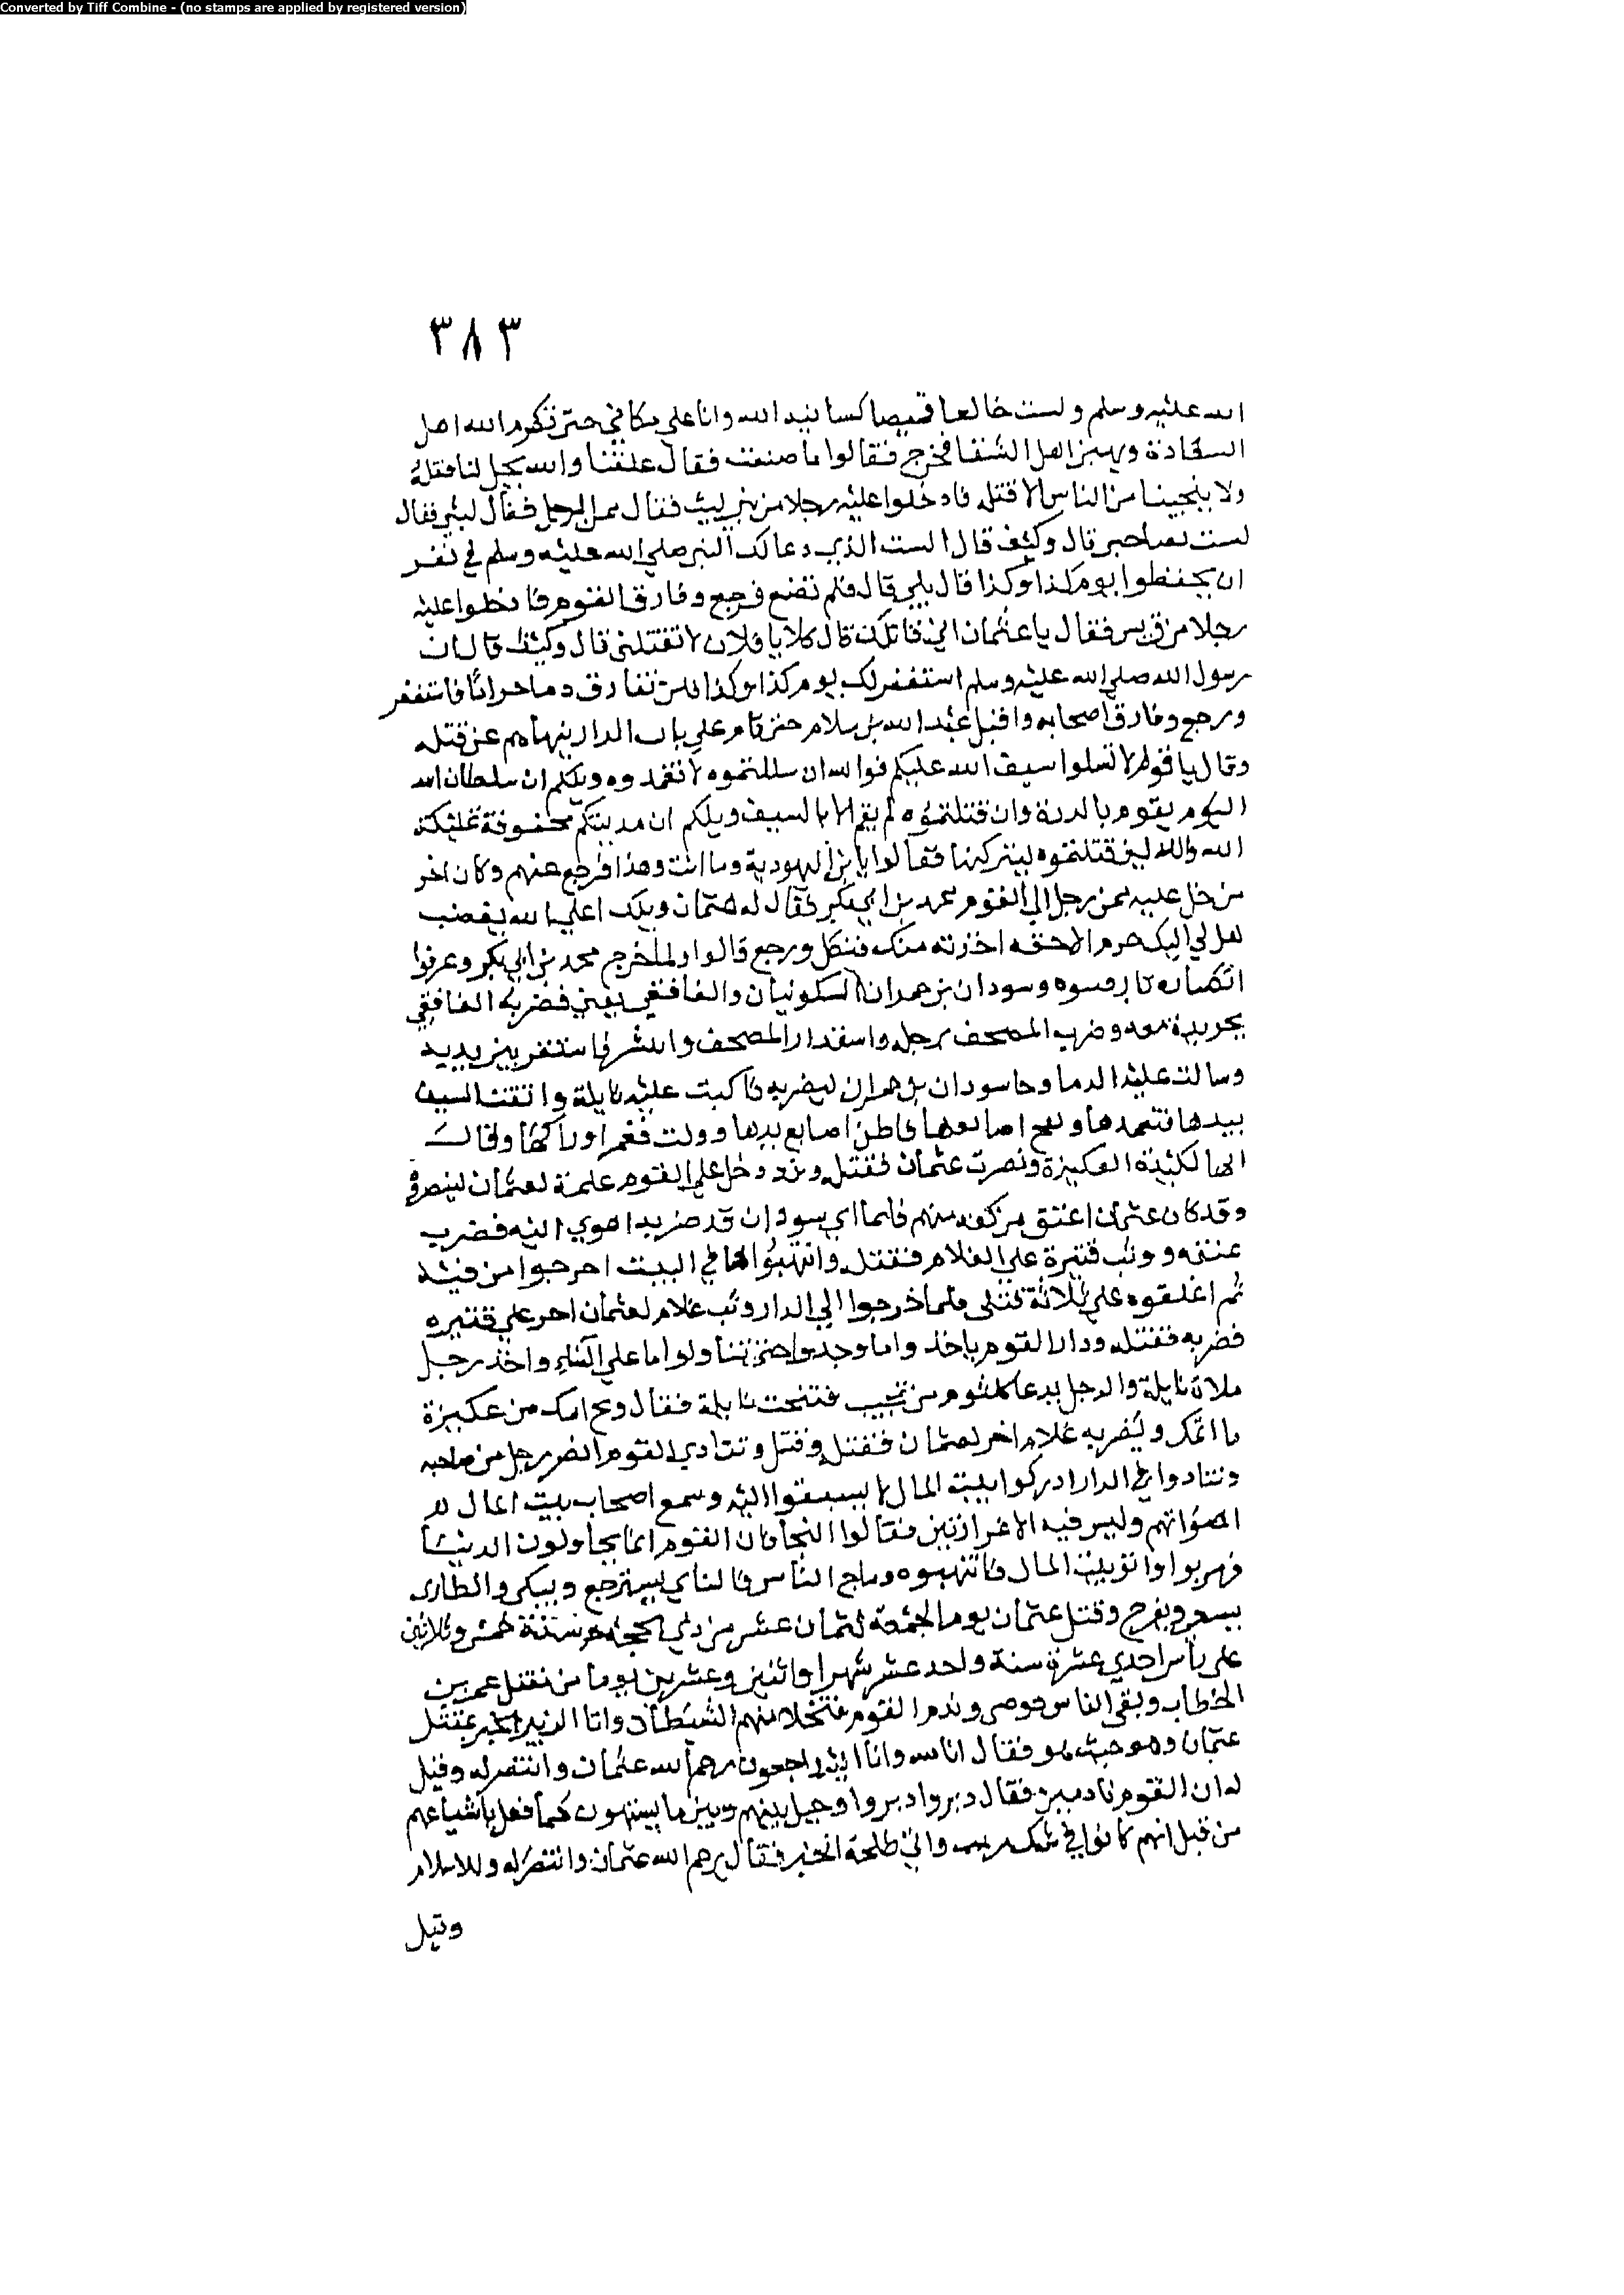 Converted by Tiff Combine - (no stamps are applied by registered version)
٣٨٣
الله عليه وسلم ولست خالعا قميصا كسانيه الله وانا على مكاني حتى يكرم الله اهل
السعادة ويهين اهل الشقا فخرج فقالوا ما صنعت فقال علقنا والله ما يحل لنا قتله
ولا ينجينا من الناس الا قتله فادخلوا عليه رجلا من بني ليث فقال ممن الرجل فقال ليثي فقال
لست بصاحبي قال وكيف قال الست الذي دعا لك النبي صلى الله عليه وسلم في نفر
ان يحفظوا يوم كذا وكذا قال بلى قال فلم تضع فرجع وفارق القوم فادخلوا عليه
رجلا من قريش فقال يا عثمان اني قاتلك قال كلا يا فلان لا تقتلني قال وكيف قال ان
رسول الله صلى الله عليه وسلم استغفر لك يوم كذا وكذا فلن تقارف دما حراما فاستغفر
ورجع وفارق اصحابه واقبل عبد الله بن سلام حتى قام على باب الدار ينهاهم عن قتله
وقال يا قوم لا تسلوا سيف الله عليكم فوالله ان سللتموه لا تغمدوه ويلكم ان سلطانكم
اليوم يقوم بالدرة وان قتلتموه لم يقم الا بالسيف ويلكم ان مدينتكم محفوفة بملئكة
الله والله لين قتلتموه ليتركنها فقالوا يا بن اليهودية وما انت وهذا فرجع عنهم وكان اخر
من دخل عليه ممن رجع الى القوم محمد بن ابي بكر فقال له عثمان ويلك اعلى الله تغضب
هل لي اليك جرم الا حقه اخذته منك فنكل ورجع قالوا ولما خرج محمد بن ابي بكر وعرفوا
انكساره ثار وسودان بن حمران السكونيان والغافقي فضربه الغافقي
بحديدة معه وضرب المصحف برجله واستدار المصحف وانتشر فاستقر بين يديه
وسالت عليه الدما وجا سودان بن حمران ليضربه فاكبت عليه نايلة واتقت السيف
بيدها فتعمدها ونفح اصابعها فاطن اصابع يدها وولت فغمز اوراكها وقال
انها لكبيرة العجيزة وضرب عثمان فقتله وقد دخل على القوم غلمة لعثمان لينصروه
وقد كان عثمان اعتق من كف منهم فلما راى سودان قد ضربه اهوى اليه فضرب
عنقه ووثب قتيرة على الغلام فقتله وانتهبوا ما في البيت اخرجوا من فيه
ثم اغلقوه على ثلاثة قتلى فلما خرجوا الى الدار وثب غلام لعثمان اخر على قتيره
فضربه فقتله ودار القوم ياخذوا ما وجدوا حتى تناولوا ما على النساء واخذ رجل
ملاة نايلة والرجل يدعا كلثوم من تجيب فتنحت نايلة فقال ويح امك من عجيزة
ما اتمك ويضربه غلام اخر لعثمان فقتله وقتل وتنادي القوم ابصر رجل من صاحبه
وتنادوا في الدار ادركوا بيت المال لا تسبقوا اليه وسمع اصحاب بيت المال
اصواتهم وليس فيه الا غرارتين فقالوا النجا فان القوم انما يحاولون الدنيا
فهربوا واتو بيت المال فانتهبوه وماج الناس فالناي يسترجع ويبكى والطارى
يسر ويفرح وقتل عثمان يوم الجمعة لثمان عشر من ذي الحجة سنة خمس وثلاثين
على راس احدي عشرة سنة واحد عشر شهرا واثنين وعشرين يوما من مقتل عمر بن
الخطاب وبقى الناس فوضى وندم القوم فتخلا منهم الشيطان واتا الزبير الخبر بمقتل
عثمان وهو حيث هو فقال انا لله وانا اليه راجعون رحم الله عثمان وانتصر له وقيل
له ان القوم نادمين فقال دبروا دبروا وحيل بينهم وبين ما يشتهون كما فعل باشياعهم
من قبل انهم كانوا في شك مريب واتى طلحة الخبر فقال رحم الله عثمان وانتصر له وللاسلام
وقيل